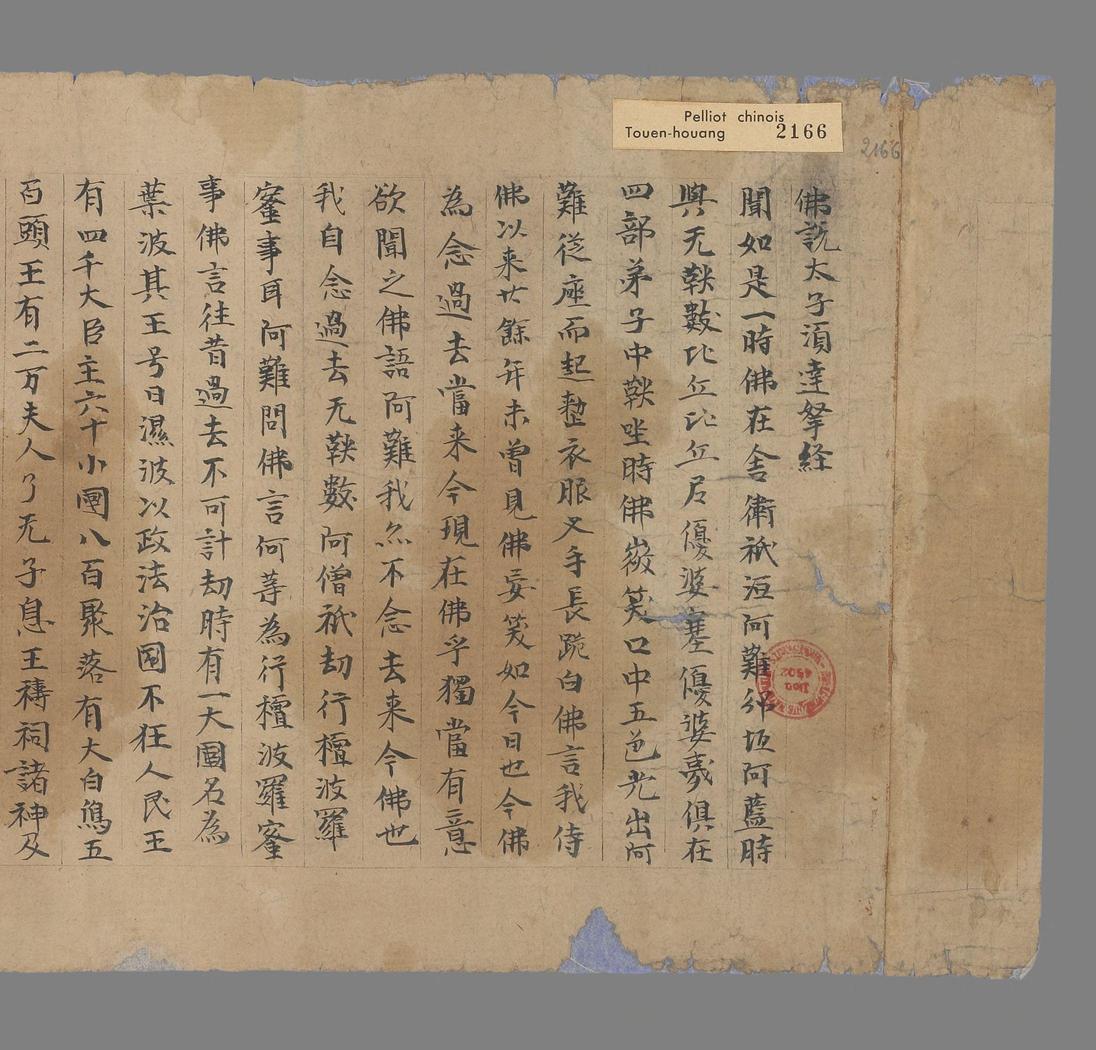 Pelliot chinois
Touen-houang 2166
2166
佛說太子湏達拏経
聞如是一時佛在舎衛祇洹阿難邠坻阿藍時
與无鞅數比丘比丘尼優婆塞優婆夷俱在
四部弟子中鞅坐時佛微笑口中五色光出阿
難從座而起整衣服叉手長跪白佛言我侍
佛以来廿餘年未曽見佛妄笑如今日也今佛
為念過去當来今現在佛乎獨當有意
欲聞之佛語阿難我亦不念去来今佛也
我自念過去无鞅數阿僧祇劫行檀波羅
蜜事耳阿難問佛言何等為行檀波羅蜜
事佛言往昔過去不可計劫時有一大國名為
葉波其王号曰濕波以政法治國不狂人民王
有四千大臣主六十小國八百聚落有大白鳥五
百頭王有二万夫人了无子息王禱祠諸神及